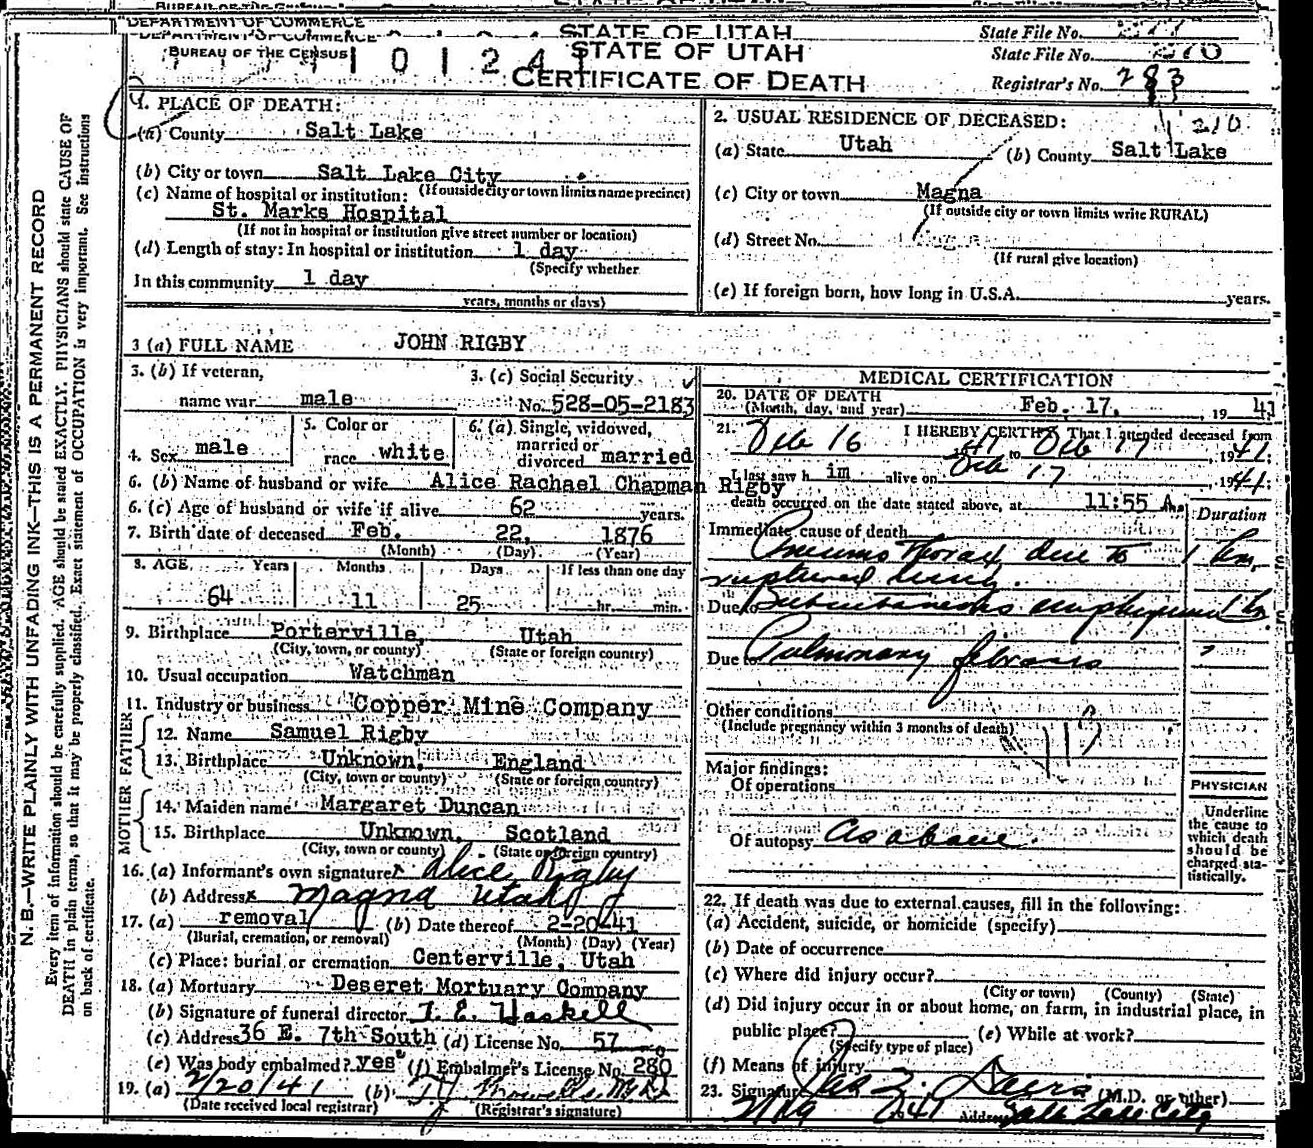 DEPARTMENT OF COMMERCE
STATE OF UTAH
State File No.
DEPARTMENT OF COMMERCE
BUREAU OF THE CENSUS
1 0 1 2 4 1
STATE OF UTAH
State File No. 270
CERTIFICATE OF DEATH
Registrar's No. 283
N. B.—WRITE PLAINLY WITH UNFADING INK—THIS IS A PERMANENT RECORD
Every item of information should be carefully supplied. AGE should be stated EXACTLY. PHYSICIANS should state CAUSE OF
DEATH in plain terms, so that it may be properly classified. Exact statement of OCCUPATION is very important. See instructions
on back of certificate.
1. PLACE OF DEATH:
(a) County Salt Lake
(b) City or town Salt Lake City
(If outside city or town limits name precinct)
(c) Name of hospital or institution:
St. Marks Hospital
(If not in hospital or institution give street number or location)
(d) Length of stay: In hospital or institution 1 day
(Specify whether
In this community 1 day
years, months or days)
2. USUAL RESIDENCE OF DECEASED:
210
(a) State Utah (b) County Salt Lake
(c) City or town Magna
(If outside city or town limits write RURAL)
(d) Street No.
(If rural give location)
(e) If foreign born, how long in U.S.A. years.
3 (a) FULL NAME JOHN RIGBY
3. (b) If veteran,
name war male
3. (c) Social Security
No. 528-05-2183
4. Sex male
5. Color or
race white
6. (a) Single, widowed,
married or
divorced married
6. (b) Name of husband or wife Alice Rachael Chapman Rigby
6. (c) Age of husband or wife if alive 62 years.
7. Birth date of deceased Feb. 22, 1876
(Month) (Day) (Year)
8. AGE Years Months Days If less than one day
64 11 25 hr. min.
9. Birthplace Porterville, Utah
(City, town, or county) (State or foreign country)
10. Usual occupation Watchman
11. Industry or business Copper Mine Company
FATHER
12. Name Samuel Rigby
13. Birthplace Unknown, England
(City, town or county) (State or foreign country)
MOTHER
14. Maiden name Margaret Duncan
15. Birthplace Unknown, Scotland
(City, town or county) (State or foreign country)
16. (a) Informant's own signature Alice Rigby
(b) Address Magna Utah
17. (a) removal (b) Date thereof 2-20-41
(Burial, cremation, or removal) (Month) (Day) (Year)
(c) Place: burial or cremation Centerville, Utah
18. (a) Mortuary Deseret Mortuary Company
(b) Signature of funeral director T. E. Haskell
(c) Address 36 E. 7th South (d) License No. 57
(e) Was body embalmed? yes (f) Embalmer's License No. 280
19. (a) 2/20/41 (b)
(Date received local registrar) (Registrar's signature)
MEDICAL CERTIFICATION
20. DATE OF DEATH
(Month, day, and year) Feb. 17, 1941
21. I HEREBY CERTIFY That I attended deceased from
Feb 16 1941 to Feb 17, 1941;
I last saw him alive on Feb 17, 1941;
death occurred on the date stated above, at 11:55 A.
Duration
Immediate cause of death
Pneumo Thorax due to 1 hr.
ruptured lung.
Due to Subcutaneous emphysema 1 hr
Due to Pulmonary fibrosis ?
Other conditions
(Include pregnancy within 3 months of death)
Major findings:
Of operations
PHYSICIAN
Underline
the cause to
which death
should be
charged sta-
tistically.
Of autopsy As above.
22. If death was due to external causes, fill in the following:
(a) Accident, suicide, or homicide (specify)
(b) Date of occurrence
(c) Where did injury occur?
(City or town) (County) (State)
(d) Did injury occur in or about home, on farm, in industrial place, in
public place? (e) While at work?
(Specify type of place)
(f) Means of injury
23. Signature (M.D. or other)
1941 Address Salt Lake City